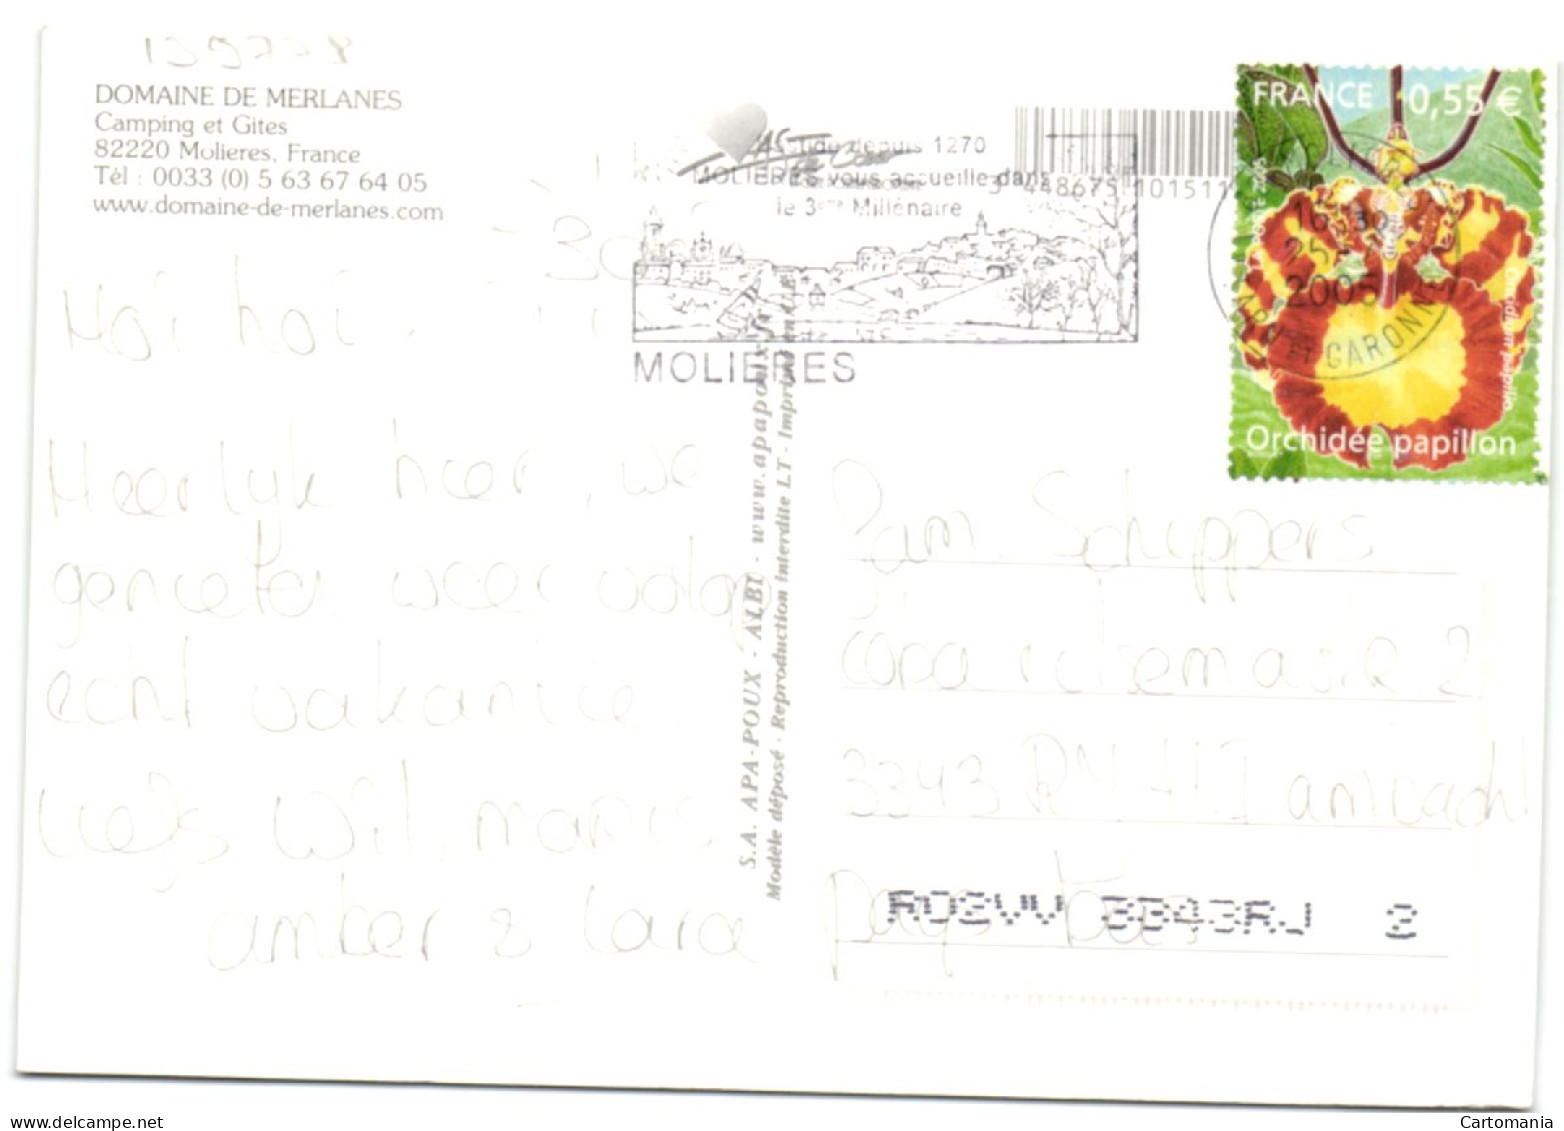 139778
DOMAINE DE MERLANES
Camping et Gites
82220 Molieres, France
Tél : 0033 (0) 5 63 67 64 05
www.domaine-de-merlanes.com
depuis 1270
MOLIERES vous accueille dans
le 3ème Millénaire
MOLIERES
3 448675 101511
FRANCE 0,55 €
2005
TARN ET GARONNE
Orchidée papillon
Hoi hoi
Heerlyk hier, we
genieten weer volop
echt vakantie
liefs Wil, marcis
amber & lara
S.A. APA-POUX - ALBI - www.apapoux.fr
Modèle déposé - Reproduction interdite LT - Imprimé en C.E.
Pam Schippers
cora rosemarie 2
3343 RN H I ambacht
pays bas
RD2VV 3343RJ 2
Cartomania